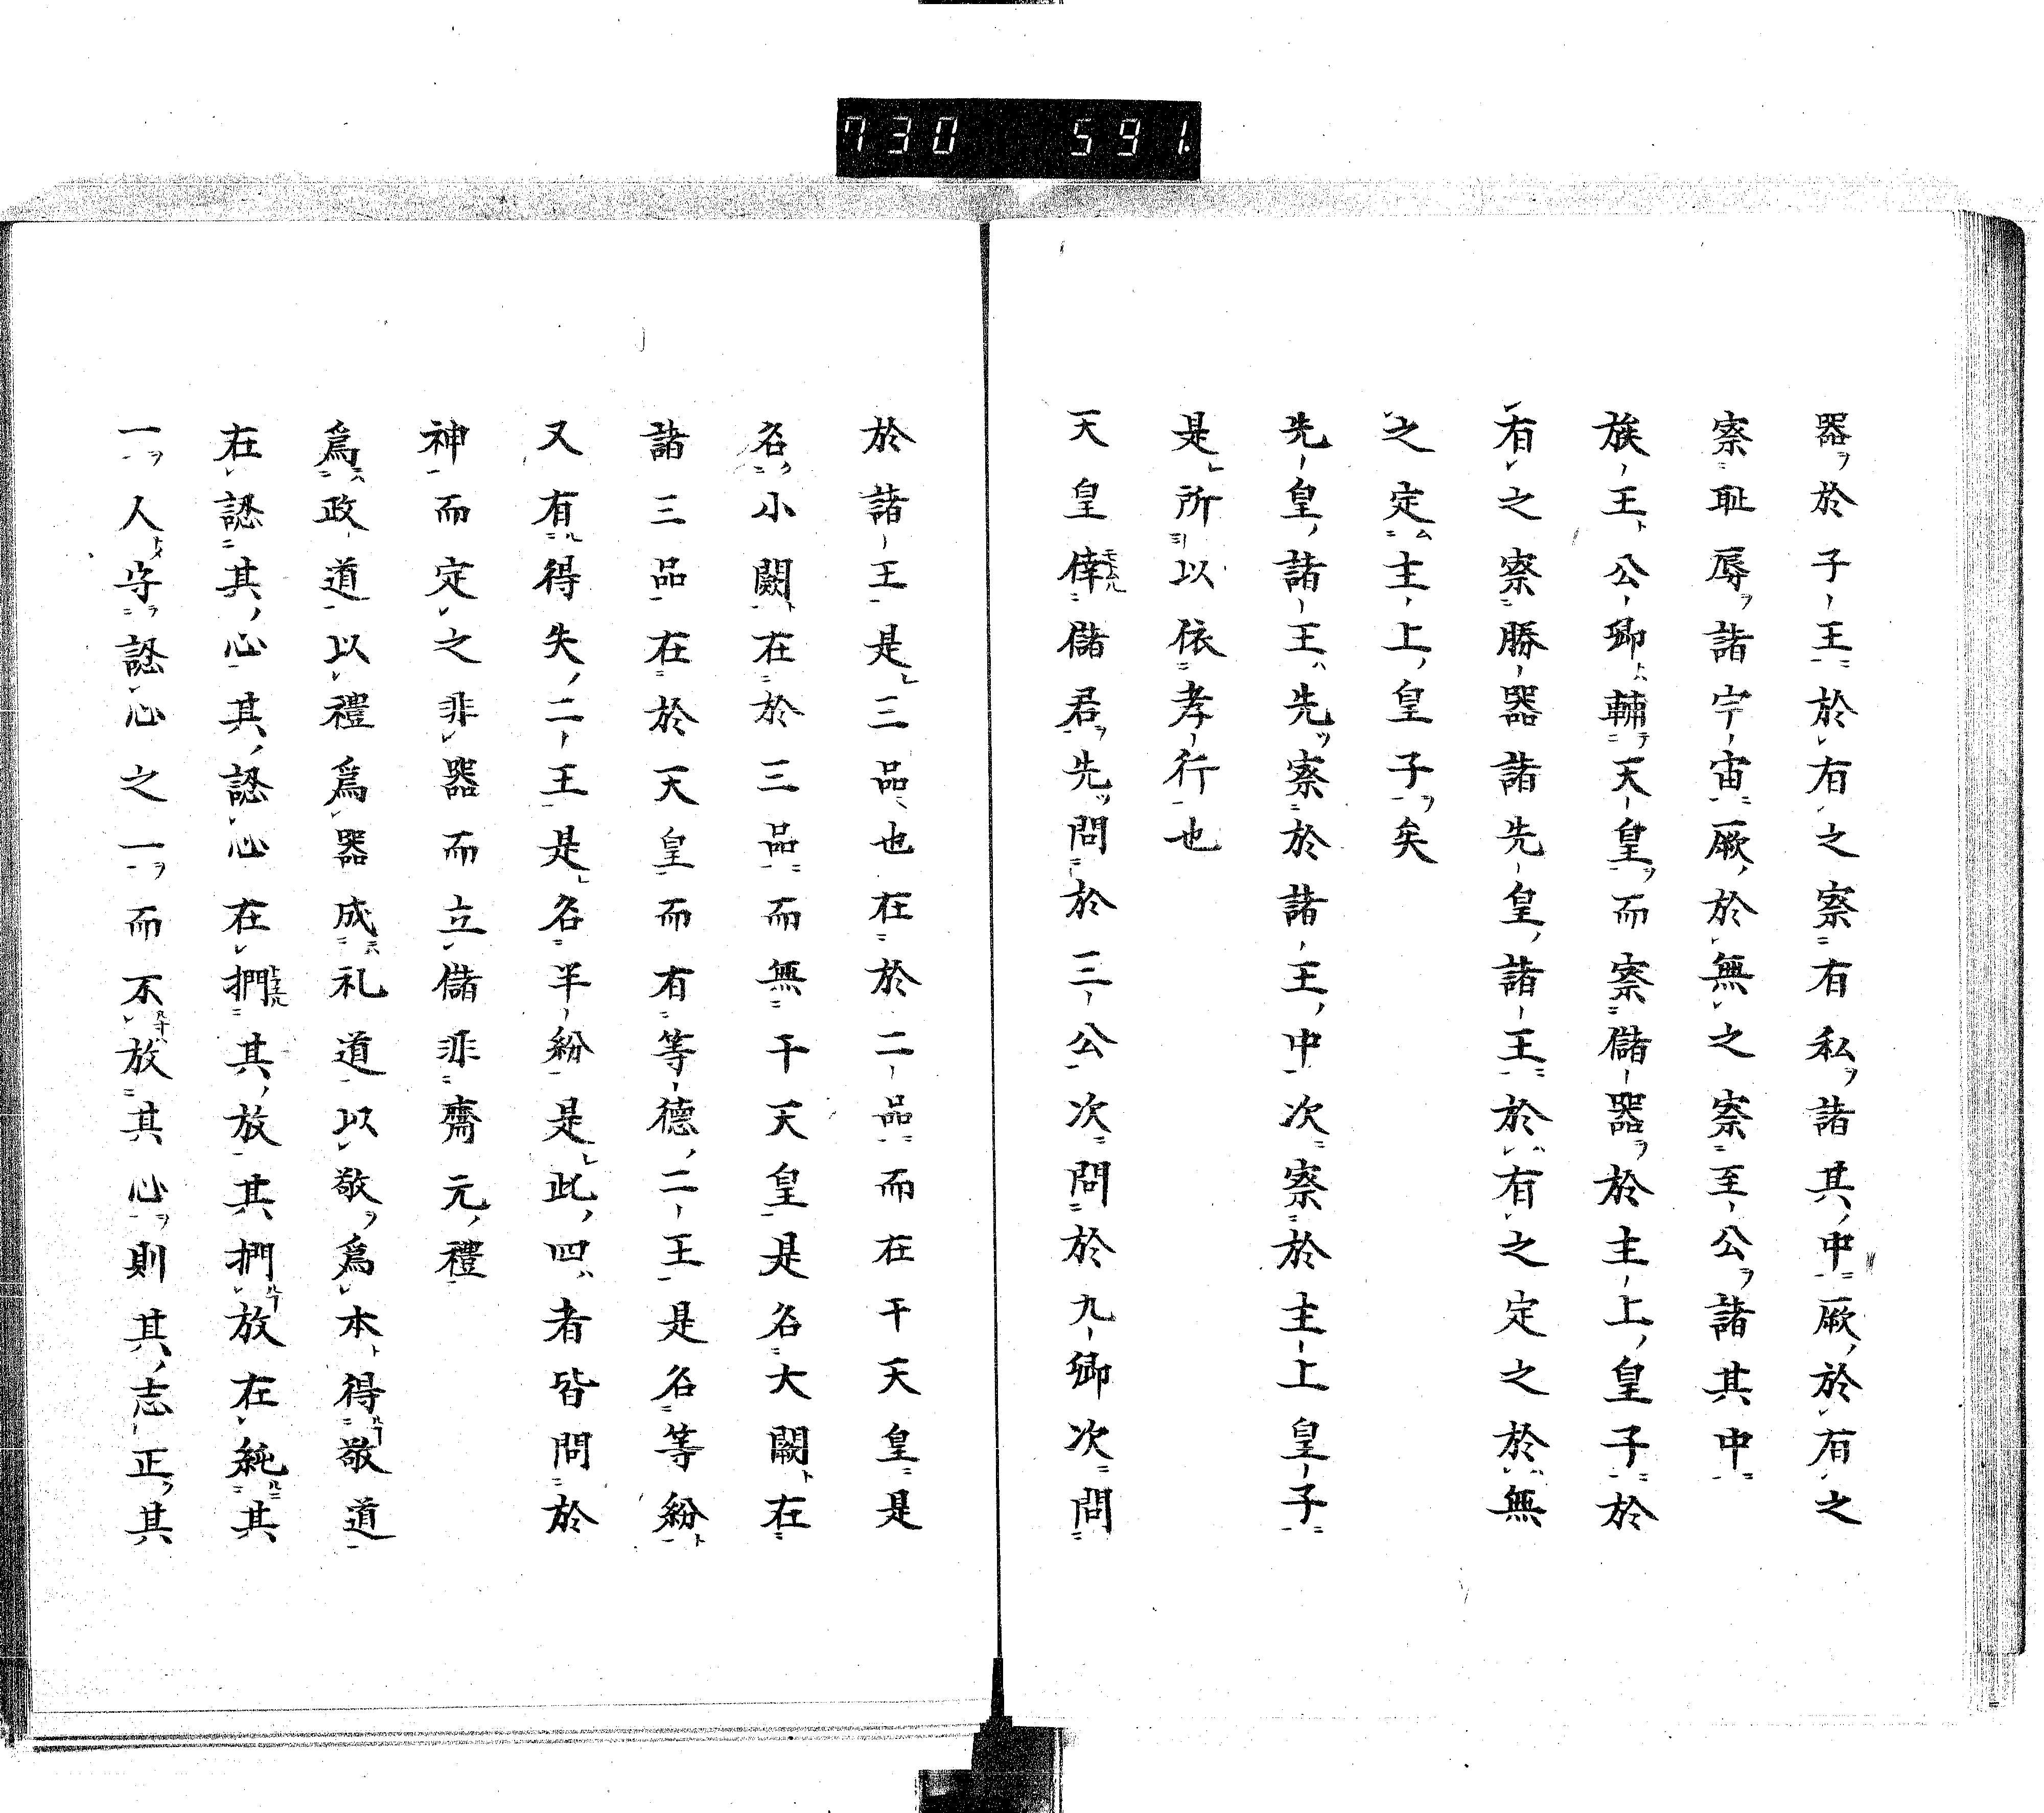 730 591
器於子王於有之察有私諸其中厥於有之
察耻辱諸宇宙厥於無之察至公諸其中
族王公卿輔天皇而察儲器於主上皇子於
有之察勝器諸先皇諸王於有之定之於無
之定主上皇子矣
先皇諸王先察於諸王中次察於主上皇子
是所以依孝行也
天皇倖儲君先問於三公次問於九卿次問
於諸王是三品也在於二品而在干天皇是
名小闕在於三品而無干天皇是名大闕在
諸三品在於天皇而有等德二王是名等紛
又有得失二王是名半紛是此四者皆問於
神而定之非器而立儲非齋元禮
爲政道以禮爲器成礼道以敬爲本得敬道
在認其心其認心在捫其放其捫放在純其
一人守認心之一而不放其心則其志正其